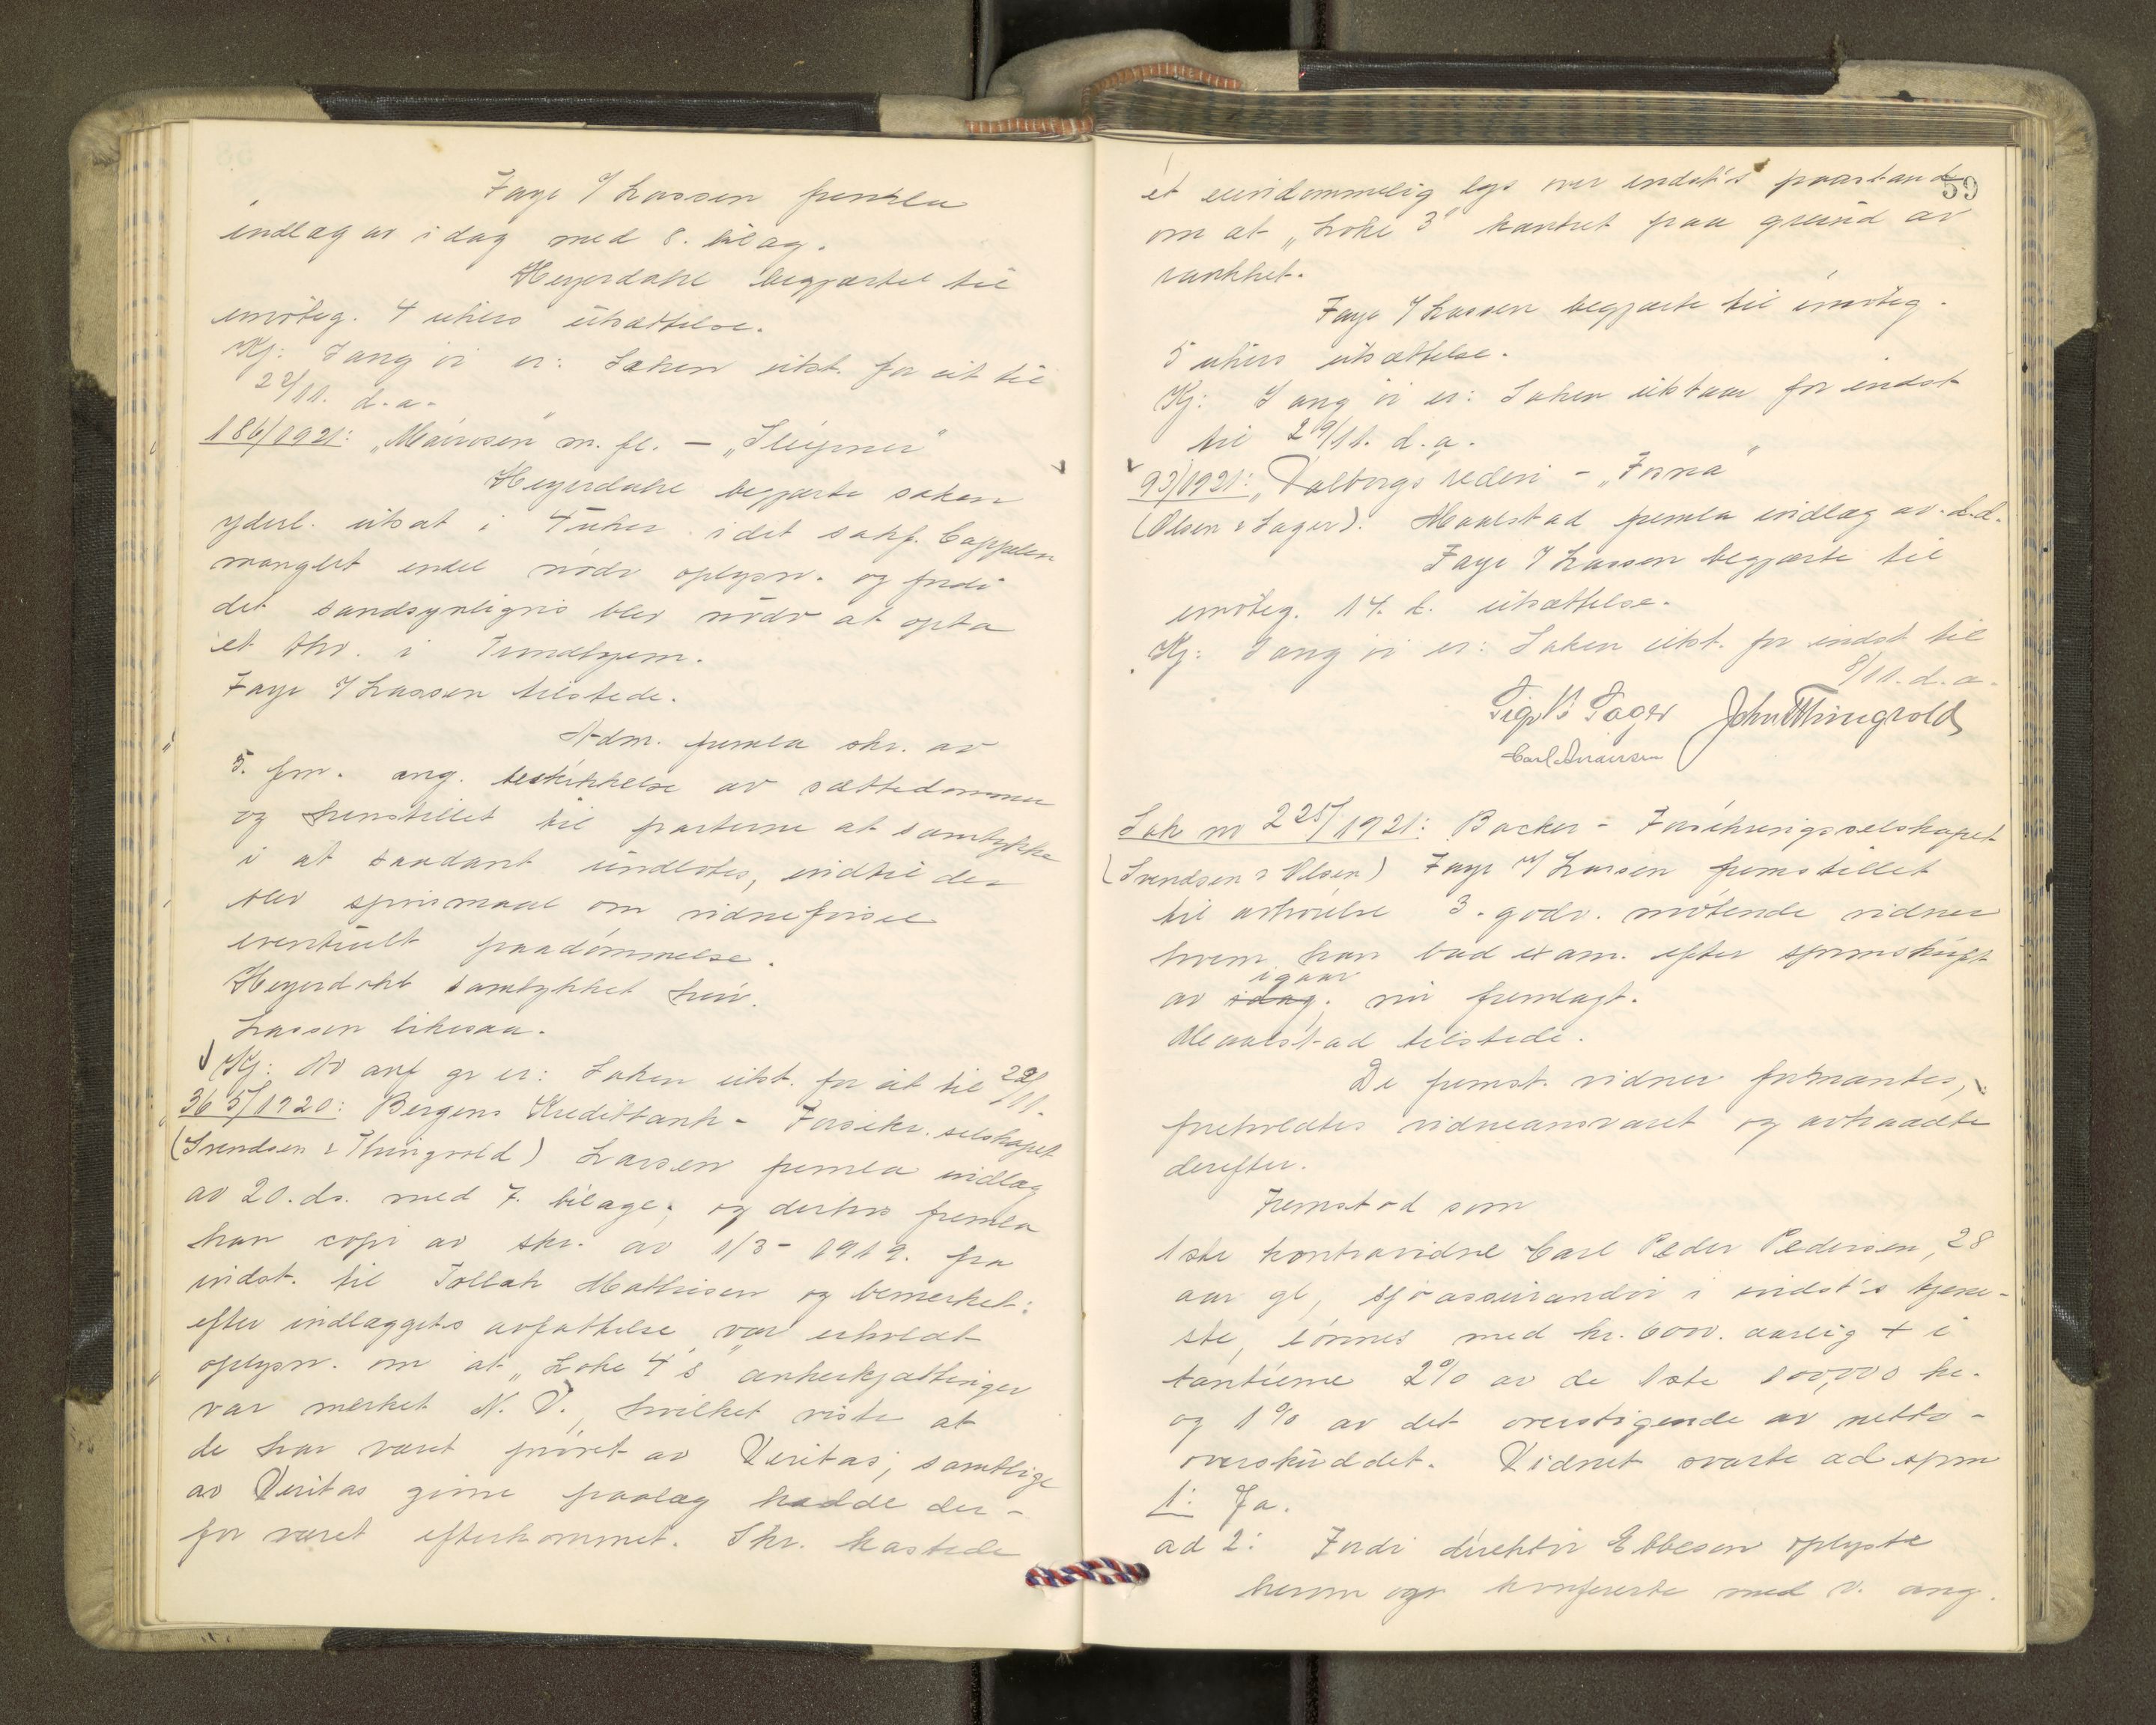 Faye v/ Lassen fremla
indlæg av i dag med 8. bilag.
Heyerdahl begjærtet til
imøteg. 4 ukers utsættelse.
Kj: I ang øi er: Saken utst. for cit til
22/11. d.a.
186/1921: „Mairosen" m. fl. – „Sleipner"
Heyerdahl begjærte saken
yderl. utsat i 4 uker idet sakf. Cappelen
manglet endel nødv oplysn. og fordi
det sandsynligvis blev nødv at opta
et thv. i Trondhjem.
Faye v/ Lassen tilstede.
Adm. fremla skr. av
5. fm. ang. beskikkelse av sættedommer
og henstillet til parterne at samtykke
i at saadant undlotes, indtil der
blev spørsmaal om vidneførsel
eventuelt paadømmelse.
Heyerdahl samtykket heri.
Lassen likesaa.
Kj: Av anf gr er: Saken utst. for cit til 22/11.
365/1920: Bergens Kreditbank – Forsikr. selskapet
(Svendsen & Thingvold) Larsen fremla indlæg
av 20. ds. med 7. bilage; og derhos fremla
han copi av skr. av 1/3 – 1919. fra
indst. til Tollak Mathisen og bemerket:
efter indlæggets avfattelse var erholdt
oplysn. om at „Loke 4's" ankerkjættinger
var merket N. V., hvilket viste at
de har været prøvet av Veritas; samtlige
av Veritas givne paalæg hadde der-
for været efterkommet. Skr. kastede
59
et eiendommelig lys over indst's paastand
om at „Loke 3" kantret paa grund av
rankhet.
Faye v/ Lassen begjærte til imøteg.
5 ukers utsættelse.
Kj: I ang øi er: Saken utstaar for indst
til 29/11. d.a.
93/1921: „Valborgs rederi – „Fosna"
(Olsen & Sager). Maalstad fremla indlæg av d.d.
Faye v/ Lassen begjærte til
imøteg. 14. d. utsættelse.
Kj: I ang øi er: Saken utst. for indst til
8/11. d.a.
Sigv. Sager John Thingvold
Carl Andersen
Sak nr 225/1921: Backer – Forsikringsselskapet
(Svendsen & Olsen) Faye v/ Larsen fremstillet
til avhørelse 3. godv. møtende vidner
hvem han bad exam. efter spørmskrift
igaar
av idag, nu fremlagt.
Maalstad tilstede.
De fremst. vidner formantes,
foreholdtes vidneansvaret og avtraadte
derefter.
Fremstod som
1ste kontravidne Carl Peder Pedersen, 28
aar gl, sjøassurandør i indst's tjene-
ste, lønnes med kr. 6000. aarlig + i
tantieme 2% av de 1ste 100,000 kr.
og 1% av det overstigende av netto-
overskuddet. Vidnet svarte ad spm
1: Ja.
ad 2: Fordi direktør Ebbesen oplyste
herom og konfererte med v. ang.